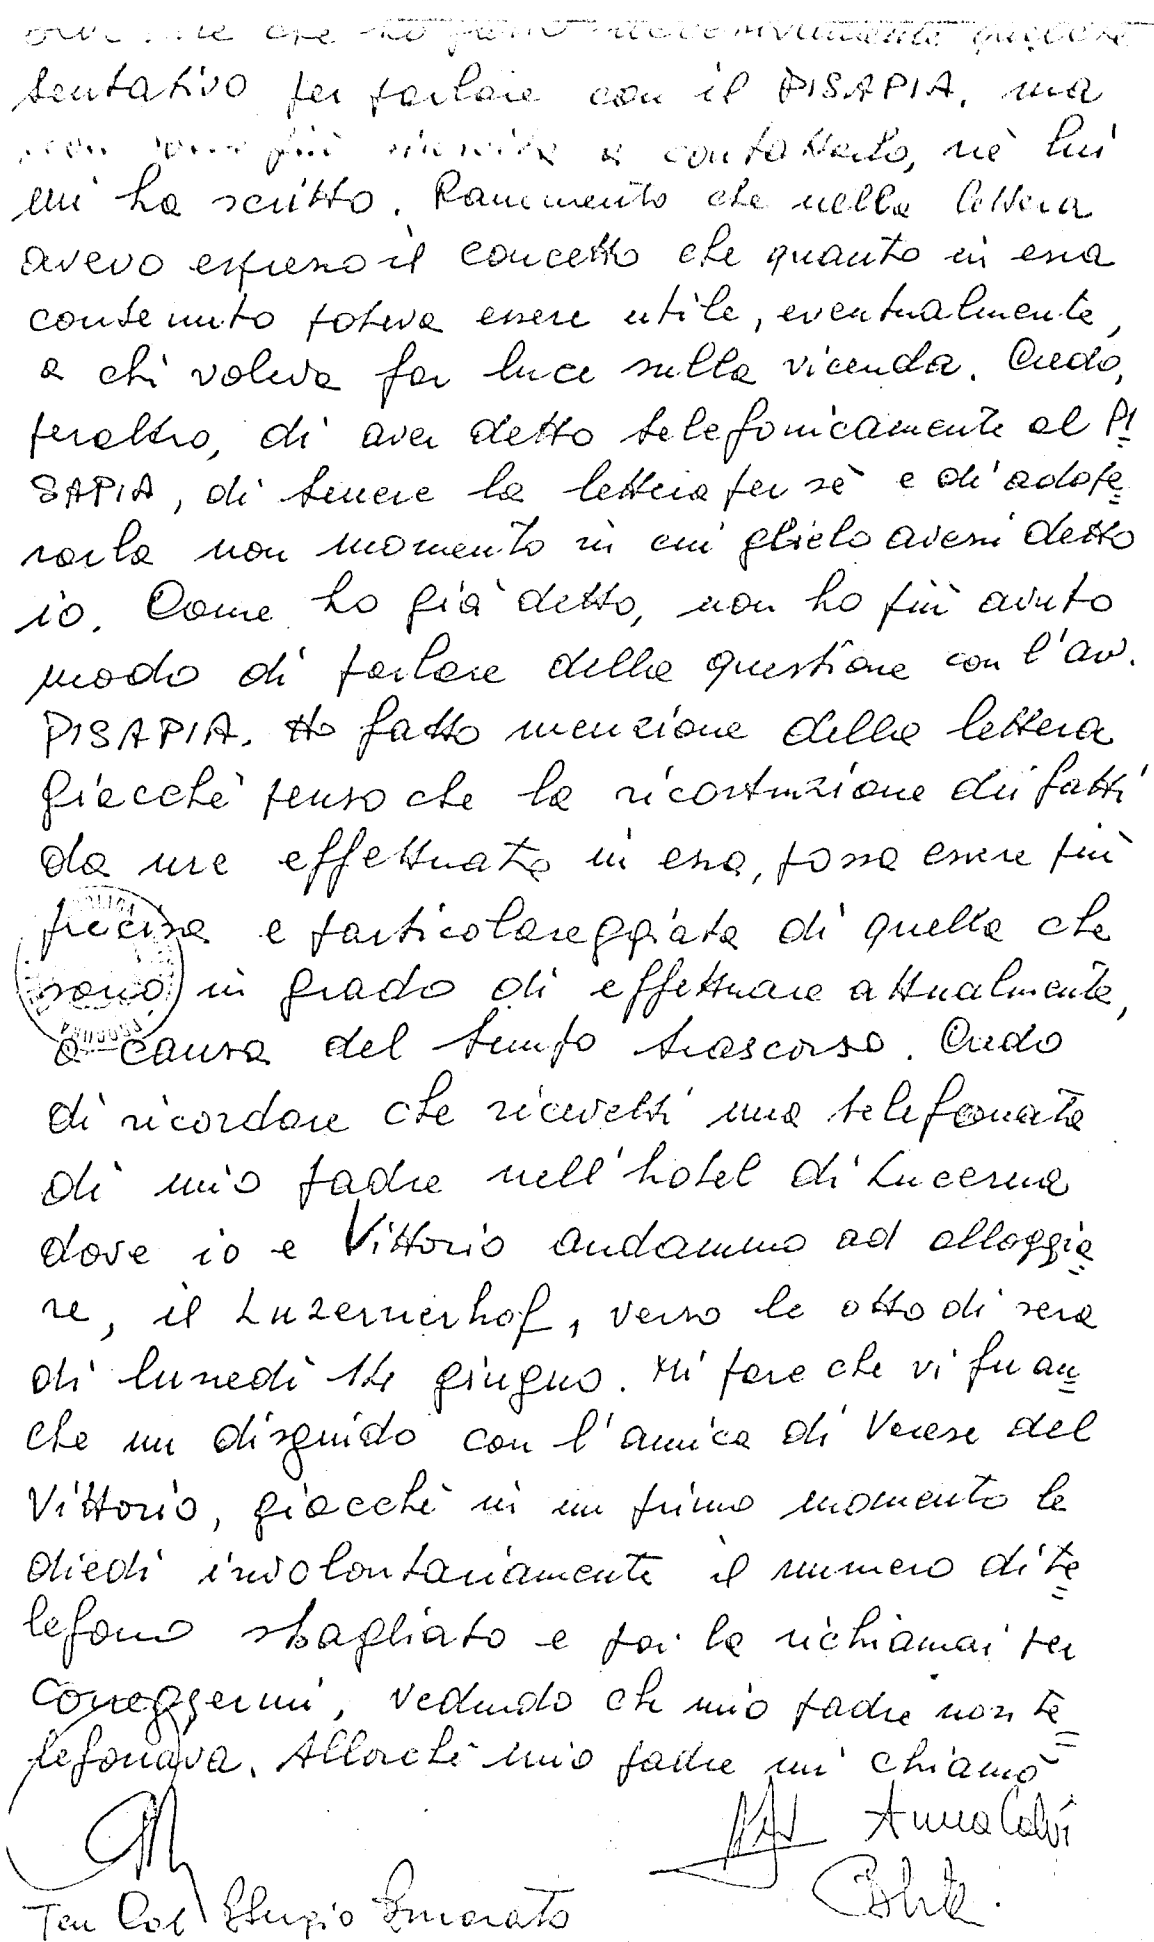 che ho fatto successivamente qualche
tentativo per parlare con il PISAPIA, ma
non sono più riuscita a contattarlo, nè lui
mi ha scritto. Rammento che nella lettera
avevo espresso il concetto che quanto in essa
contenuto poteva essere utile, eventualmente,
a chi voleva far luce sulla vicenda. Credo,
peraltro, di aver detto telefonicamente al PI=
SAPIA, di tenere la lettera per sè e di adope=
rarla non momento in cui glielo avessi detto
io. Come ho già detto, non ho più avuto
modo di parlare della questione con l'av.
PISAPIA. Ho fatto menzione della lettera
giacchè penso che la ricostruzione dei fatti
da me effettuata in essa, possa essere più
precisa e particolareggiata di quella che
sono in grado di effettuare attualmente,
a causa del tempo trascorso. Credo
di ricordare che ricevetti una telefonata
di mio padre nell'hotel di Lucerna
dove io e Vittorio andammo ad alloggia=
re, il Luzernerhof, verso le otto di sera
di lunedì 14 giugno. Mi pare che vi fu an=
che un disguido con l'amica di Varese del
Vittorio, giacchè in un primo momento le
diedi involontariamente il numero di te=
lefono sbagliato e poi la richiamai per
correggermi, vedendo che mio padre non te=
lefonava. Allorchè mio padre mi chiamò
Anna Calvi
Ten Col